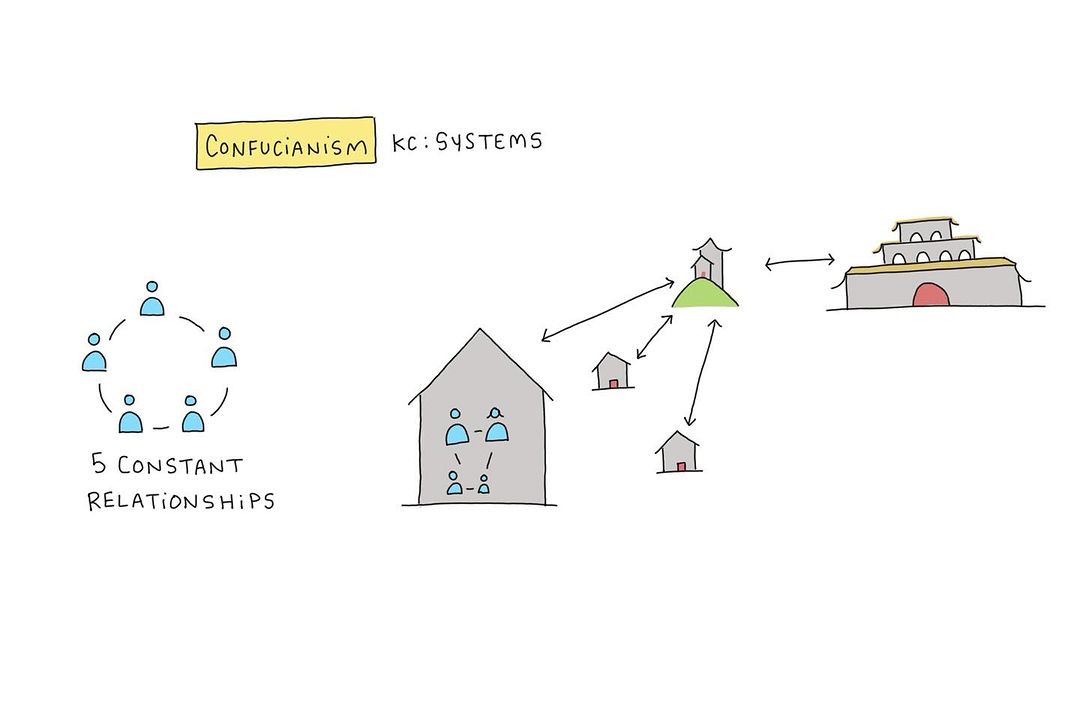 CONFUCiANiSM KC: SYSTEMS
5 CONSTANT
RELATiONSHiPS